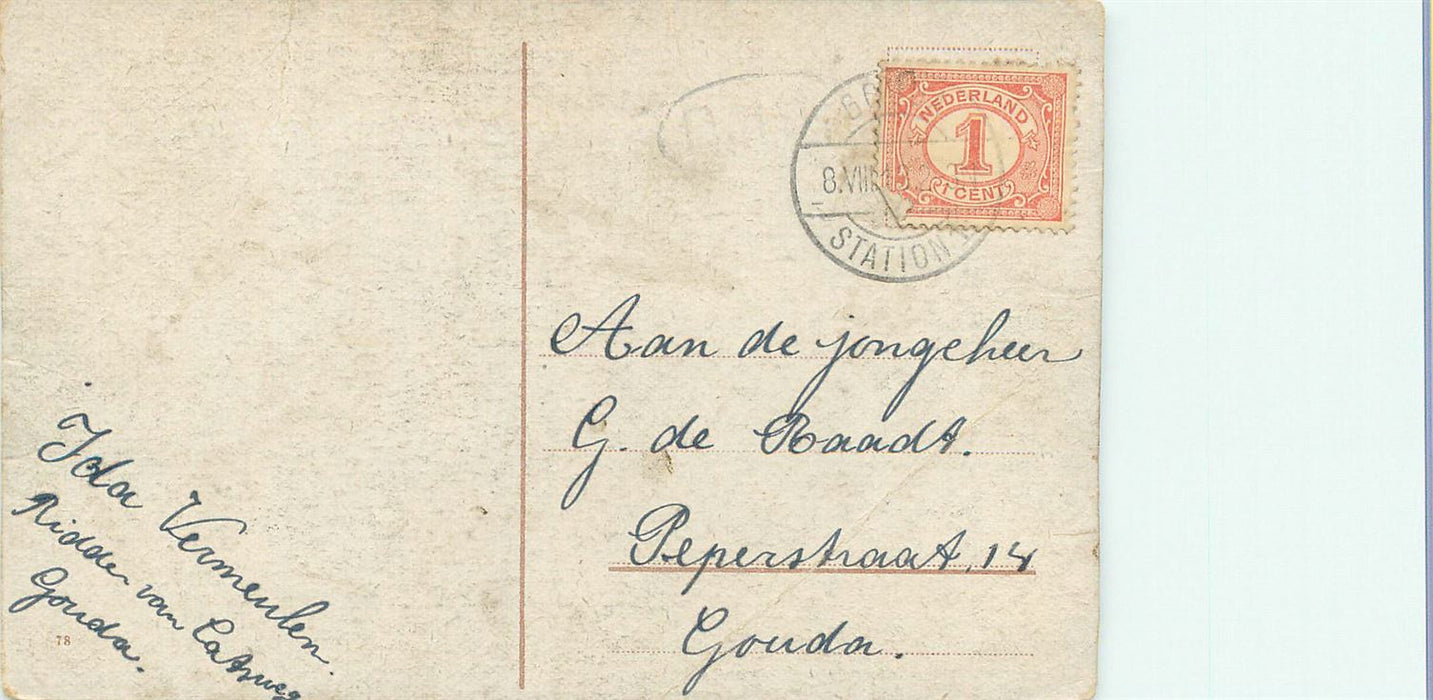 NEDERLAND
1
1 CENT
8.VIII
STATION
Aan de jongeheer
G. de Raadt.
Peperstraat. 14
Gouda.
Ida Vermeulen.
Ridder van Catsweg
Gouda.
78